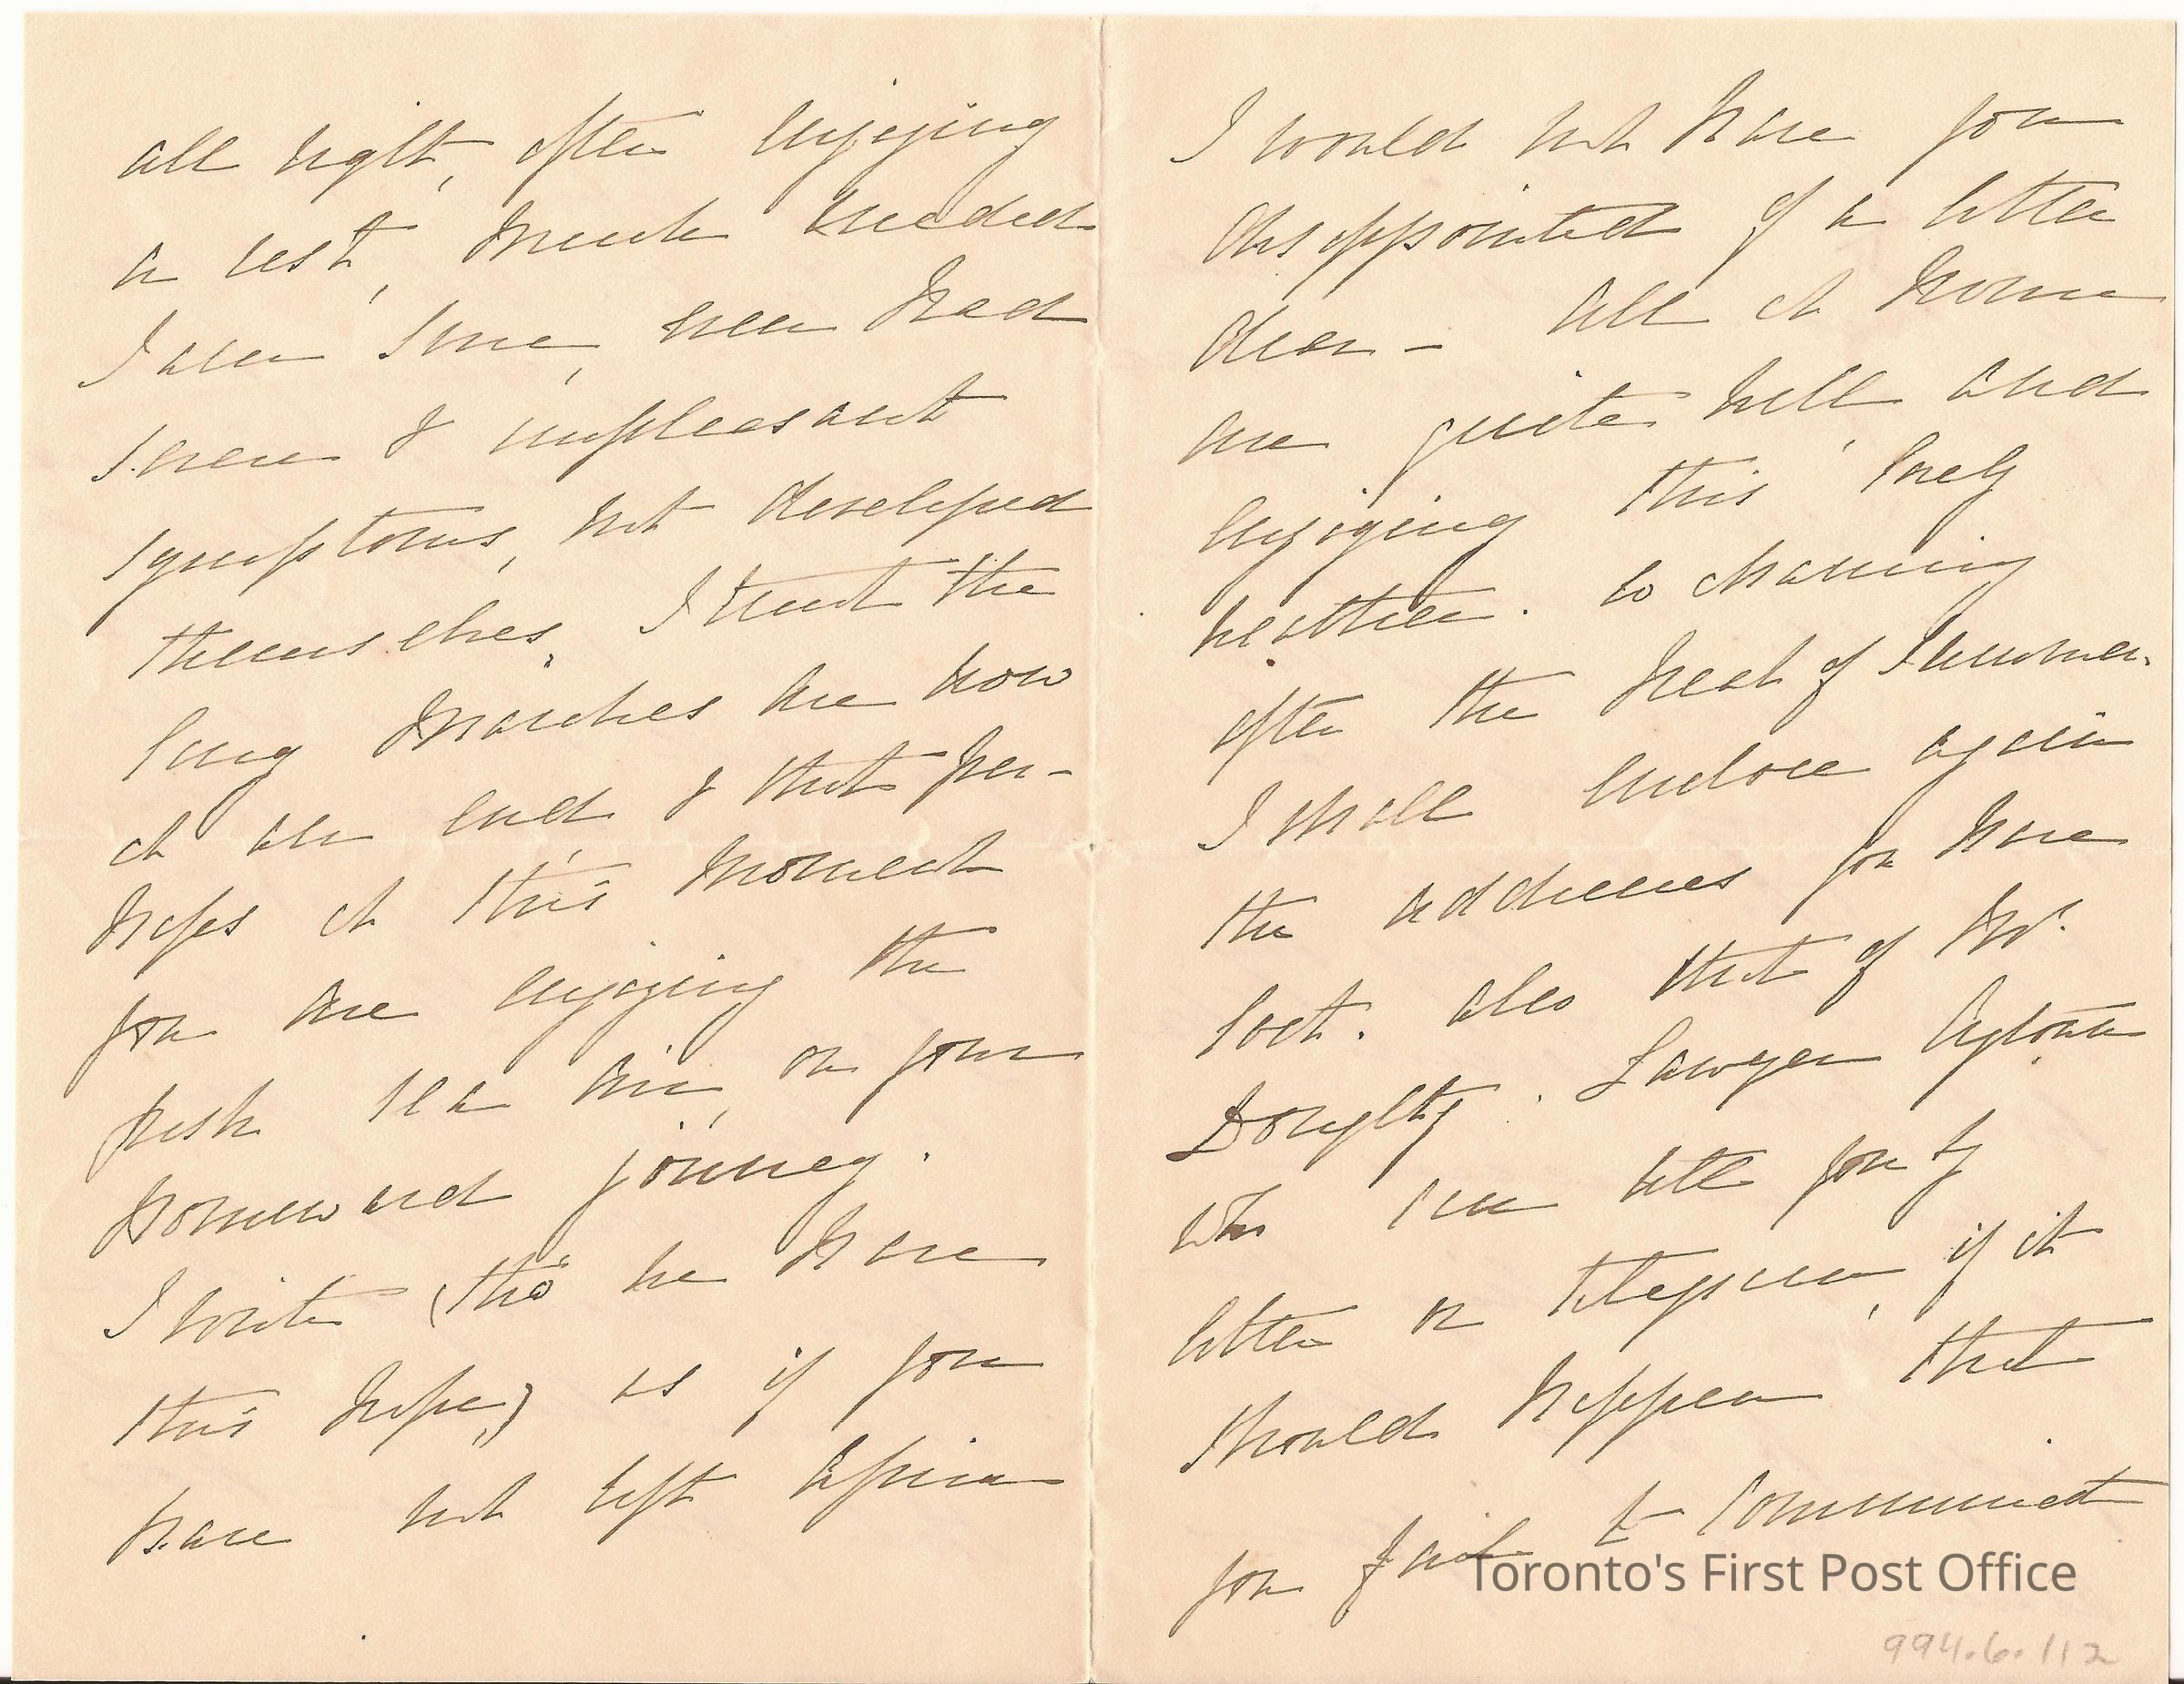 all right, after enjoying
a rest, much needed
I am sure, even had
severe & unpleasant
symptoms, not developed
themselves. I trust the
long marches are now
at an end & that per-
haps at this moment
you are enjoying the
fresh sea air, on your
homeward journey.
I write (tho' we have
this hope,) as if you
have not left Africa
I would not have you
disappointed of a letter
dear - all at home
are quite well and
enjoying this lovely
weather. so charming
after the heat of Summer.
I shall enclose again
the addresses you have
lost. also that of Mr.
Doughty. Lawyer
who can tell you by
letter or telegram, if it
should happen that
you fail to communicate
Toronto's First Post Office
994.6.112